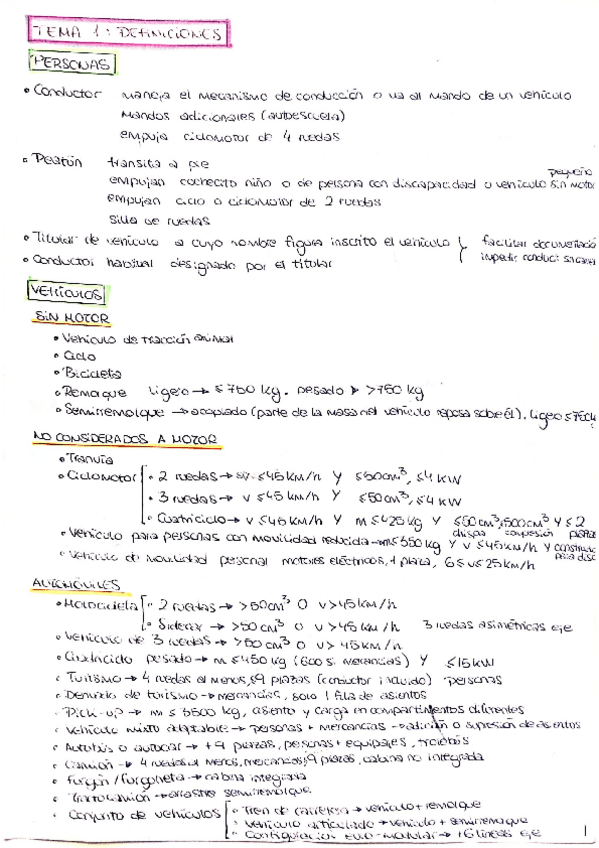 TEMA 1: DEFINICIONES
PERSONAS
• Conductor maneja el mecanismo de conducción o va al mando de un vehículo
mandos adicionales (autoescuela)
empuja ciclomotor de 4 ruedas
• Peatón transita a pie
pequeño
empujan cochecito niño o de persona con discapacidad o vehículo sin motor
empujan ciclo o ciclomotor de 2 ruedas
silla de ruedas
• Titular de vehículo a cuyo nombre figura inscrito el vehículo } facilitar documentació
• Conductor habitual designado por el titular impedir conducir sin
VEHÍCULOS
SIN MOTOR
• Vehículo de tracción animal
• Ciclo
• Bicicleta
• Remolque ligero → ≤750 kg. pesado → >750 kg
• Semirremolque → acoplado (parte de la masa del vehículo reposa sobre él). Ligero ≤750k
NO CONSIDERADOS A MOTOR
• Tranvía
• Ciclomotor • 2 ruedas → v ≤45 km/h Y ≤50cm³, ≤4 kW
• 3 ruedas → v ≤45 km/h Y ≤50cm³, ≤4 kW
• Cuatriciclo → v ≤45 km/h Y m ≤425 kg Y ≤50cm³, 500cm³ Y ≤2
chispa compresión plazas
• Vehículo para personas con movilidad reducida → m ≤350 kg Y v ≤45 km/h Y construido
para disc
• Vehículo de movilidad personal motores eléctricos, 1 plaza, 6 ≤ v ≤ 25 km/h
AUTOMÓVILES
• Motocicleta • 2 ruedas → >50cm³ O v >45 km/h
• Sidecar → >50 cm³ O v >45 km/h 3 ruedas asimétricas eje
• Vehículo de 3 ruedas → >50 cm³ O v >45 km/h
• Cuatriciclo pesado → m ≤450 kg (600 si mercancías) Y ≤15kW
• Turismo → 4 ruedas al menos, ≤9 plazas (conductor incluido) personas
• Derivado de turismo → mercancías, solo 1 fila de asientos
• Pick-up → m ≤ 3500 kg, asiento y carga en compartimentos diferentes
• Vehículo mixto adaptable → personas + mercancías → adición o supresión de asientos
• Autobús o autocar → +9 plazas, personas + equipajes, trolebús
• Camión → 4 ruedas al menos, mercancías, 9 plazas, cabina no integrada
• Furgón / furgoneta → cabina integrada
• Tractocamión → arrastre semirremolque
• Conjunto de vehículos • Tren de carretera → vehículo + remolque
• Vehículo articulado → vehículo + semirremolque
• Configuración euro-modular → +6 líneas eje
1